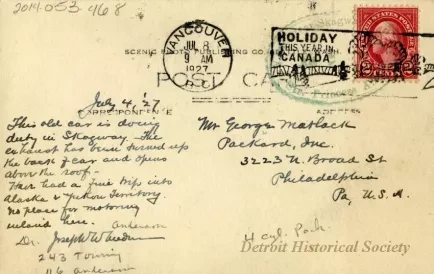 2014.053.468
VANCOUVER
JUL 8
9 AM
1927
B.C.
HOLIDAY
THIS YEAR IN
CANADA
UNITED STATES POSTAGE
CENTS
SCENIC PHOTO PUBLISHING CO.
POST CA
CORRESPONDENCE
ADDRESS
Princess
July 4, '27
This old car is doing
duty in Skagway - The
exhaust has been turned up
the back of car and opens
above the roof -
Have had a fine trip into
Alaska & Yukon Territory.
No place for motoring
inland here. Anderson
Dr. Joseph W
243 Touring
116 Anderson
Mr George Matlack
Packard, Inc.
3223 N. Broad St
Philadelphia
Pa, U.S.A.
4 cyl. Pack.
Detroit Historical Society